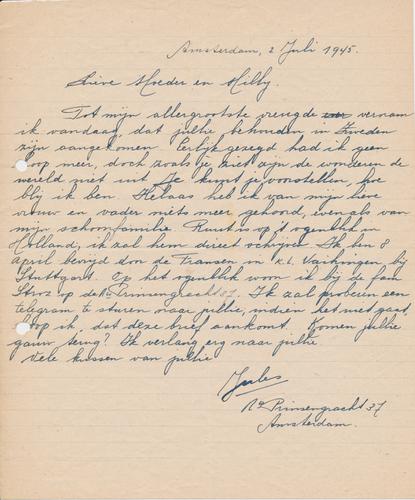 Amsterdam, 2 Juli 1945.
Lieve Moeder en Milly.
Tot mijn allergrootste vreugde vernam
ik vandaag, dat jullie behouden in Zweden
zijn aangekomen. Eerlijk gezegd had ik geen
hoop meer, doch zoals je ziet zijn de wonderen de
wereld niet uit. Je kunt je voorstellen, hoe
blij ik ben. Helaas heb ik van mijn lieve
vrouw en vader niets meer gehoord, evenals van
mijn schoonfamilie. Ruut is op 't ogenblik in
Holland, ik zal hem direct schrijven. Ik ben 8
April bevrijd door de Fransen in K.L. Vaihingen bij
Stuttgart. Op het ogenblik woon ik bij de fam.
Stroz op de Prinsengracht 37. Ik zal proberen een
telegram te sturen naar jullie, indien het niet gaat,
hoop ik, dat deze brief aankomt. Komen jullie
gauw terug? Ik verlang erg naar jullie
Vele kussen van jullie
Jules
Prinsengracht 37
Amsterdam.